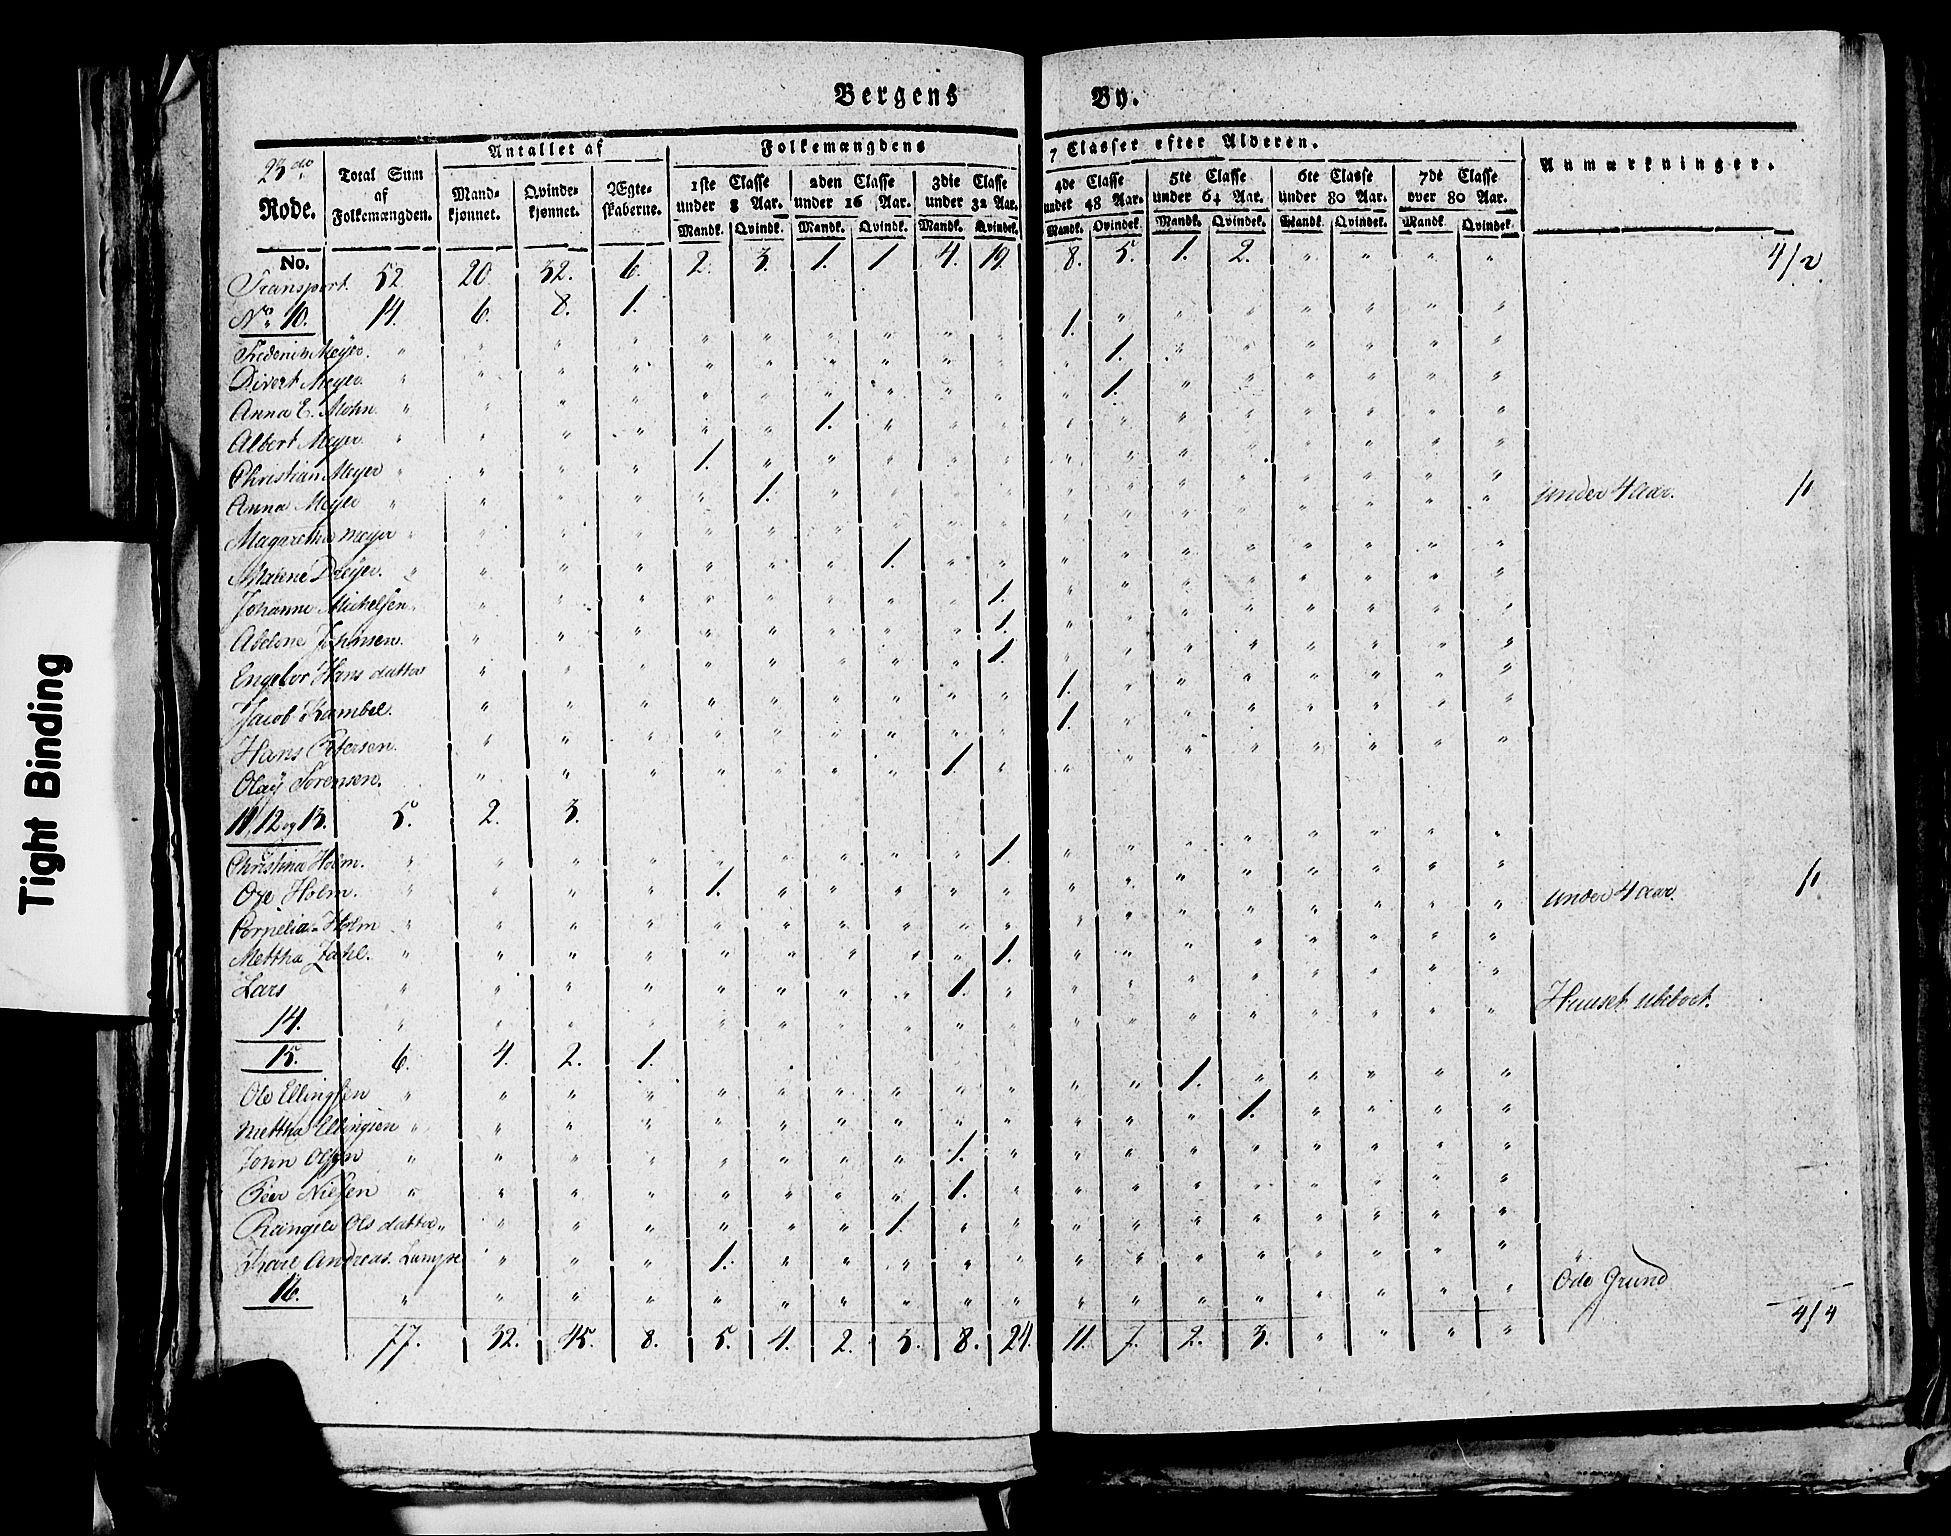 Bergens By.
23de Rode.
Total Sum af Folkemængden.
Antallet af
Mandkjønnet. Qvindekjønnet. Ægteskaberne.
Folkemængdens 7 Classer efter Alderen.
1ste Classe under 8 Aar. 2den Classe under 16 Aar. 3die Classe under 32 Aar. 4de Classe under 48 Aar. 5te Classe under 64 Aar. 6te Classe under 80 Aar. 7de Classe over 80 Aar.
Mandk. Qvindk. Mandk. Qvindk. Mandk. Qvindek. Mandk. Qvindek. Mandk. Qvindek. Mandk. Qvindek. Mandk. Qvindek.
Anmærkninger.
No.
Transport. 52 20. 32. 6. 2. 3. 1. 1 4. 19. 8. 5. 1. 2. " " " " 4/2
No 10. 14. 6. 8. 1.
Frederich Meyer. " " " " " " " " " " 1. " " " " " " "
Divert Meyer. " " " " " " " " " " " 1. " " " " " "
Anna E. Mohn. " " " " " " " " " " " 1. " " " " " "
Albert Meyer. " " " " " " 1. " " " " " " " " " " "
Christian Meyer " " " " 1. " " " " " " " " " " " " "
Anna Meyer " " " " " 1. " " " " " " " " " " " " under 4 aar. 1/
Magaretha Meyer " " " " " " " " " " " " " " " " " "
Malene Dreyer. " " " " " " " 1. " " " " " " " " " "
Johanne Michelsen " " " " " " " " " 1. " " " " " " " "
Abelone Johansen. " " " " " " " " 1. " " " " " " " "
Engelbor Hans datter " " " " " " " " 1. " " " " " " " "
Jacob Kambel. " " " " " " " " " 1. " " " " " " "
Hans Petersen. " " " " " " " " " 1. " " " " " " "
Olay Sørensen. " " " " " " " 1. " " " " " " " " "
11, 12 og 13. 5. 2. 3.
Christina Holm. " " " " " " " " " 1. " " " " " " " "
Oye Holm. " " " " 1. " " " " " " " " " " " " " under 4 aar. 1/
Cornelia Holm " " " " " " " " " " " " " " " " " "
Mettha Zahl. " " " " " " " " " 1. " " " " " " " "
Lars " " " " " " " " 1. " " " " " " " " "
14. " " " " " " " " " " " " " " " " " " Huuset ubboet.
15. 6. 4. 2. 1.
Ole Ellingsen " " " " " " " " " " " " 1. " " " " "
Mettha Ellingsen " " " " " " " " " " " " " 1. " " " "
John Olsen " " " " " " " " 1. " " " " " " " " "
Peer Nielsen " " " " " " " " 1. " " " " " " " " "
Rangele Ols datter " " " " " " " 1. " " " " " " " " " "
Karl Andreas Lampe " " " 1. " " " " " " " " " " " " "
16. " " " " " " " " " " " " " " " " " " Öde Grund
77. 32. 45. 8. 5. 4. 2. 3. 8. 24. 11. 7. 2. 3. " " " " 4/4
Tight Binding